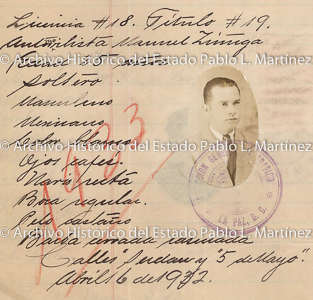 Licencia #18. Título #19.
Automovilista Manuel Zúñiga
Soltero
Masculino
Mexicano
© Archivo Histórico del Estado Pablo L. Martínez
Color blanco
Ojos cafes.
Nariz recta
Boca regular.
Pelo castaño
Barba cerrada rasurada
Calles "Juarez y 5 de Mayo".
Abril 6 de 1932.
1933
LA PAZ, B. C.
© Archivo Histórico del Estado Pablo L. Martínez
© Archivo Histórico del Estado Pablo L. Martínez
© Archivo Histórico del Estado Pablo L. Martínez